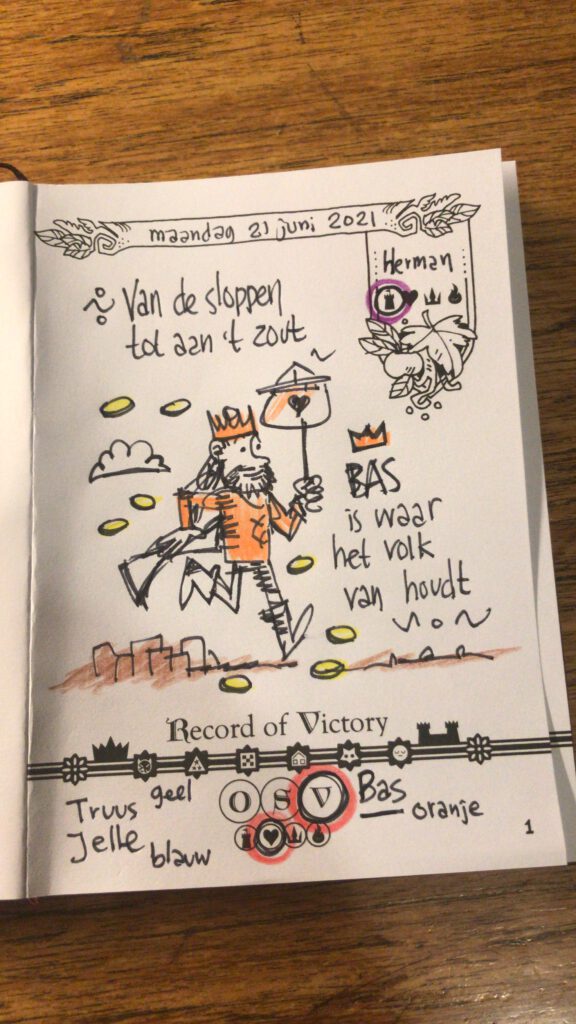 maandag 21 juni 2021
Herman
Van de sloppen
tot aan 't zout
BAS
is waar
het volk
van houdt
Record of Victory
Truus geel
Jelle blauw
O S V
Bas
oranje
1